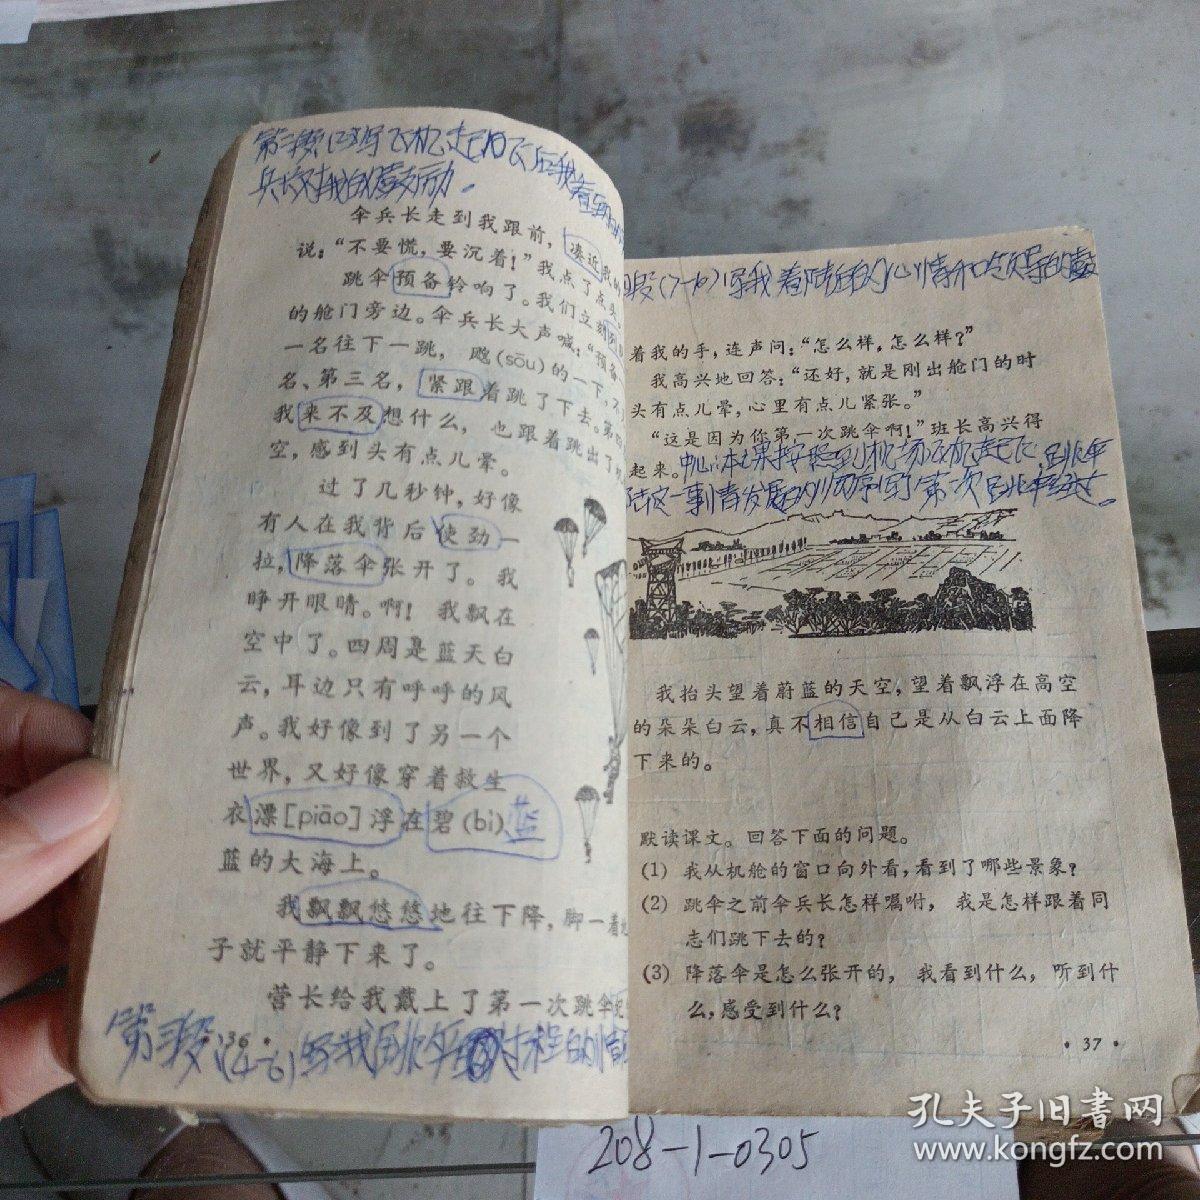 第二段(2-3)写飞机起飞后我看
兵长对我的鼓励。
伞兵长走到我跟前，凑近我的
说：“不要慌，要沉着！”我点了点头。
跳伞预备铃响了。我们立刻
的舱门旁边。伞兵长大声喊：“预备
一名往下一跳，飕(sōu)的一下，不
名、第三名，紧跟着跳了下去。第四
我来不及想什么，也跟着跳出了
空，感到头有点儿晕。
过了几秒钟，好像
有人在我背后使劲一
拉，降落伞张开了。我
睁开眼睛。啊！我飘在
空中了。四周是蓝天白
云，耳边只有呼呼的风
声。我好像到了另一个
世界，又好像穿着救生
衣漂[piāo]浮在碧(bì)蓝
蓝的大海上。
我飘飘悠悠地往下降，脚一着
子就平静下来了。
营长给我戴上了第一次跳伞纪
• 36 •
第三段(4-6)写我跳伞时过程的情
段(7-10)写我着陆后的心情和
着我的手，连声问：“怎么样，怎么样？”
我高兴地回答：“还好，就是刚出舱门的时
头有点儿晕，心里有点儿紧张。”
“这是因为你第一次跳伞啊！”班长高兴得
起来。
中心：本课按照到机场飞机起飞，跳伞
陆这一事情发展的顺序写第一次跳伞经过。
我抬头望着蔚蓝的天空，望着飘浮在高空
的朵朵白云，真不相信自己是从白云上面降
下来的。
默读课文。回答下面的问题。
(1) 我从机舱的窗口向外看，看到了哪些景象？
(2) 跳伞之前伞兵长怎样嘱咐，我是怎样跟着同
志们跳下去的？
(3) 降落伞是怎么张开的，我看到什么，听到什
么，感受到什么？
• 37 •
208-1-0305
孔夫子旧书网
www.kongfz.com